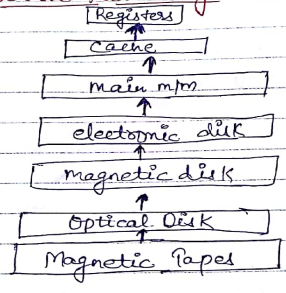 Registers
Cache
main m/m
electronic disk
magnetic disk
Optical Disk
Magnetic Tapes